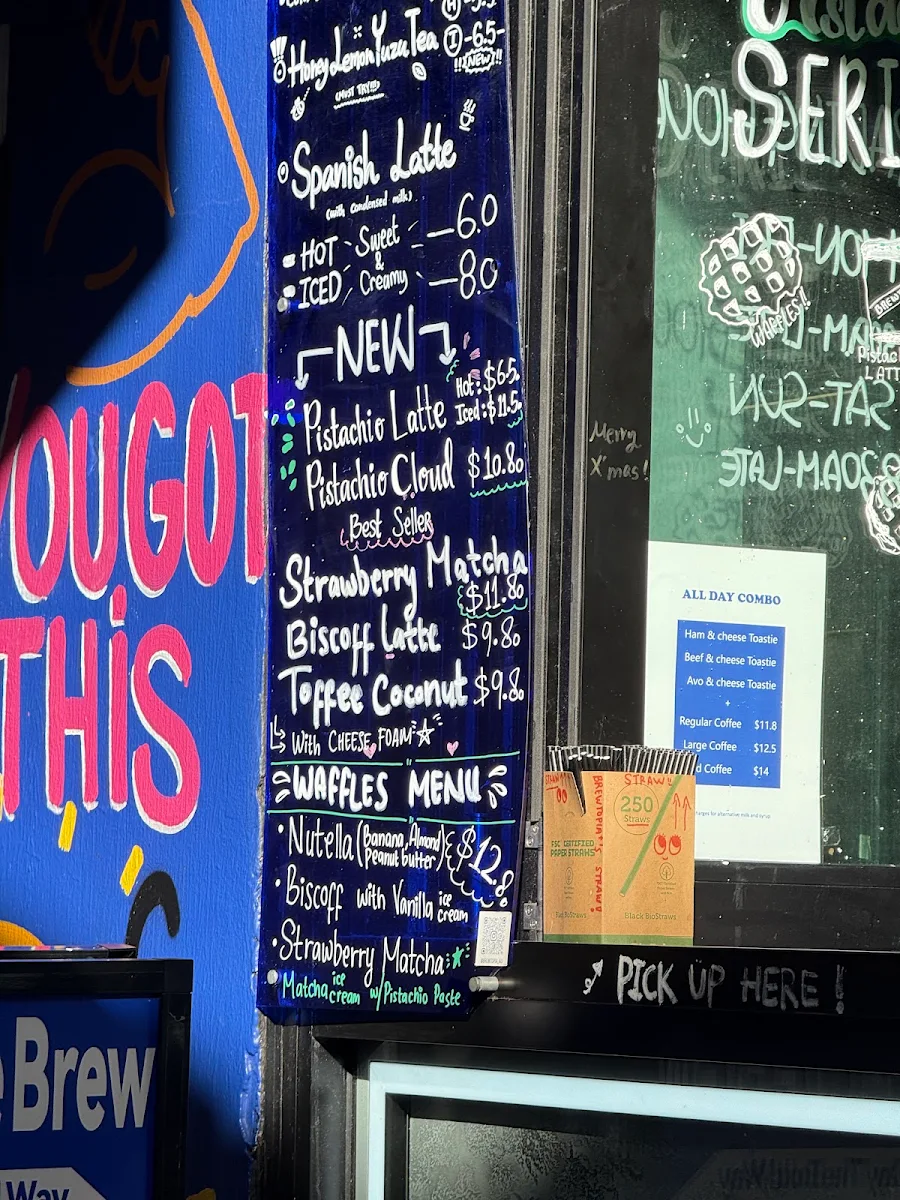 Honey Lemon Yuzu Tea
(MUST TRY!!!)
I -6.5-
!!(NEW)!!
Spanish Latte
(with condensed milk)
HOT Sweet — 6.0
&
ICED Creamy — 8.0
NEW!
Pistachio Latte Hot: $6.5.
Iced: $11.5.
Pistachio Cloud $10.80
Best Seller
Strawberry Matcha
$11.80
Biscoff Latte $9.80
Toffee Coconut $9.80
With CHEESE FOAM
WAFFLES MENU
Nutella (Banana, Almond, Peanut butter) $12.8
Biscoff with Vanilla ice cream
Strawberry Matcha
Matcha ice cream w/ Pistachio Paste
YOUGOT
THIS
Brew
Way
SERI
WAFFLES!!
MON-FRI
SAT-SUN
8:30AM-LATE
Merry
X'mas!
ALL DAY COMBO
Ham & cheese Toastie
Beef & cheese Toastie
Avo & cheese Toastie
+
Regular Coffee $11.8
Large Coffee $12.5
d Coffee $14
STRAW!!
250
Straws
BREWTOPIA'S STRAW!
FSC CERTIFIED
PAPER STRAWS
Black BioStraws
PICK UP HERE!